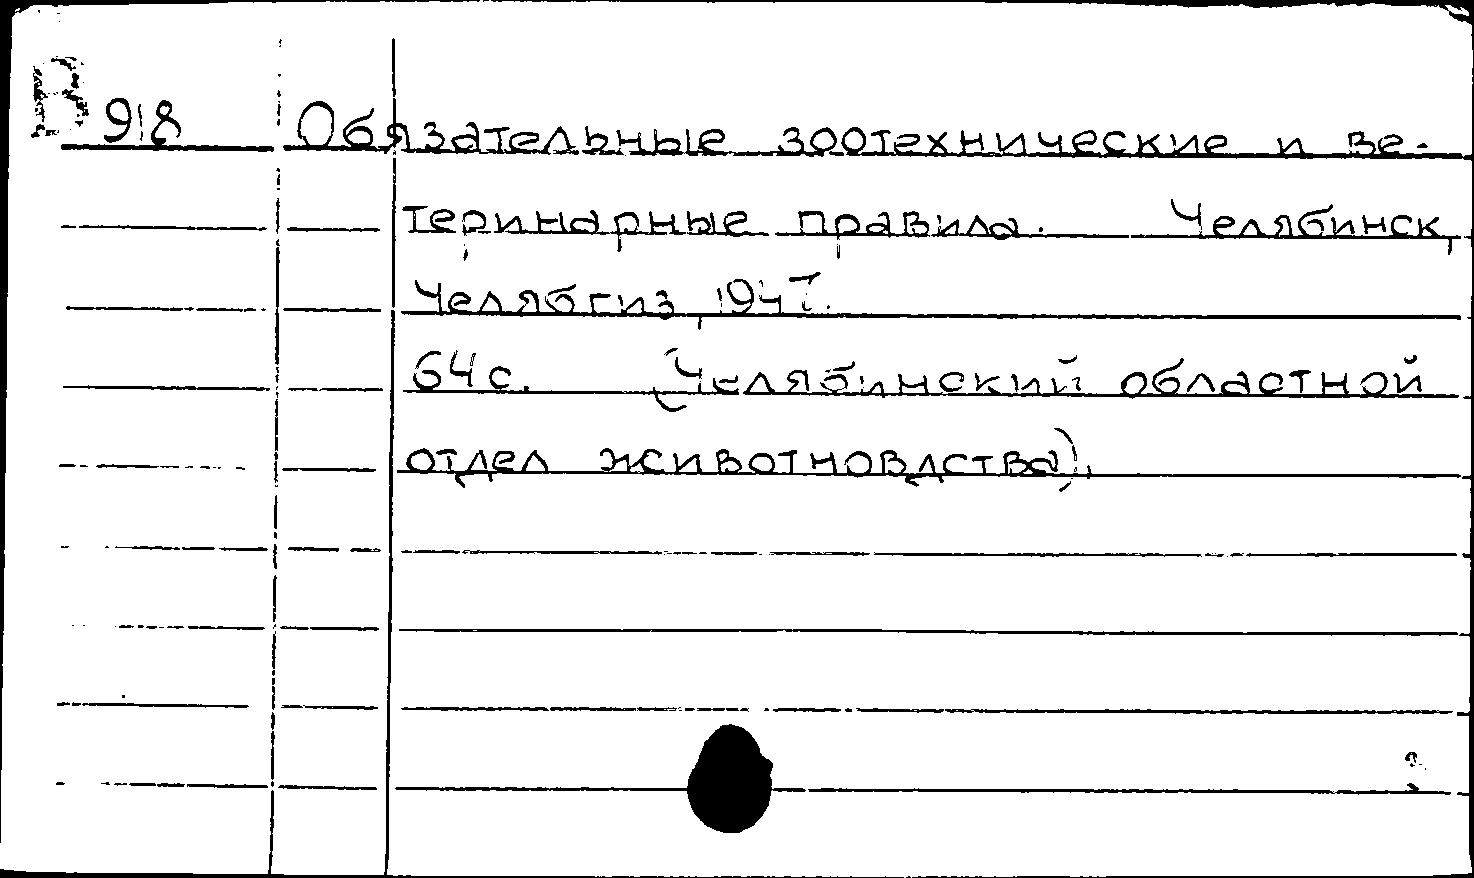 В 918 Обязательные зоотехнические и ве-
теринарные правила. Челябинск,
Челябгиз, 1947.
64 с. (Челябинский областной
отдел животновдства).